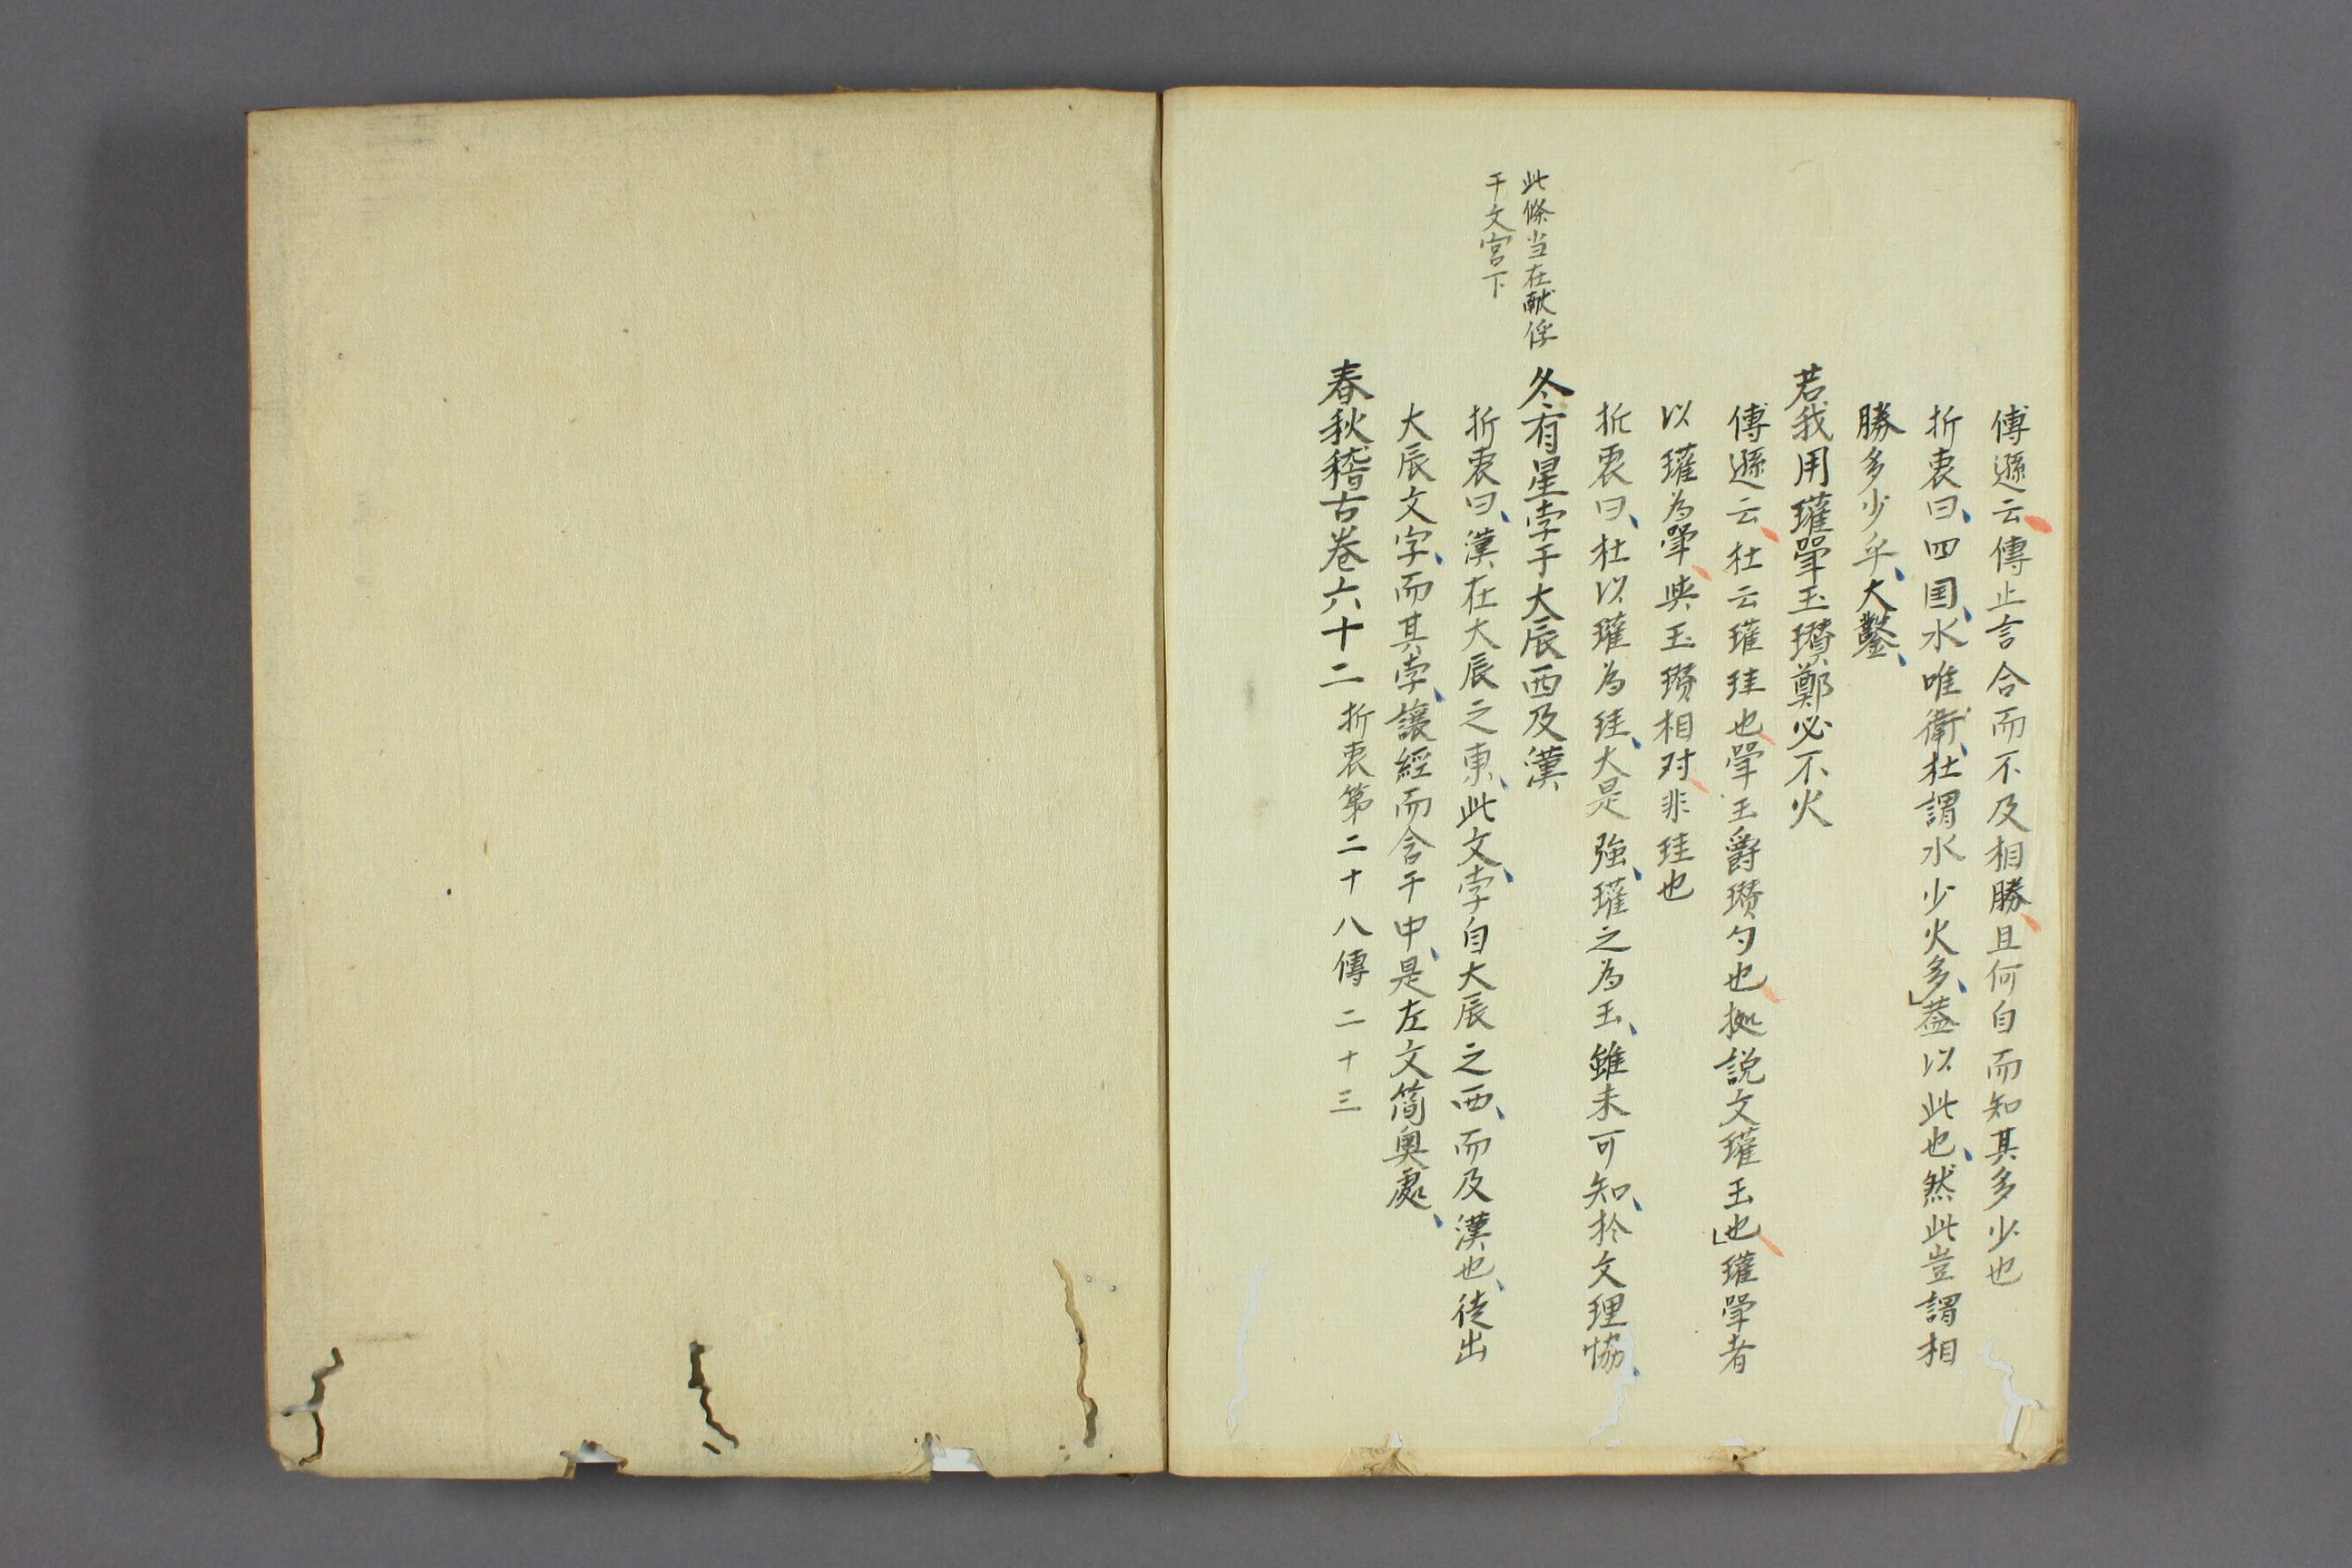 傅遜云傳止言合而不及相勝且何自而知其多少也
折衷曰四国水唯衛杜謂水少火多蓋以此也然此豈謂相
勝多少乎大鑿
若我用瓘斝玉瓚鄭必不火
傅遜云杜云瓘珪也斝玉爵瓚勺也拠説文瓘玉也瓘斝者
以瓘為斝與玉瓚相対非珪也
折衷曰杜以瓘為珪大是強瓘之為玉雖未可知於文理協
此條当在献俘
于文宮下
冬有星孛于大辰西及漢
折衷曰漢在大辰之東此文孛自大辰之西而及漢也徒出
大辰文字而其孛讓經而含于中是左文简奥處
春秋稽古巻六十二 折衷第二十八傳二十三